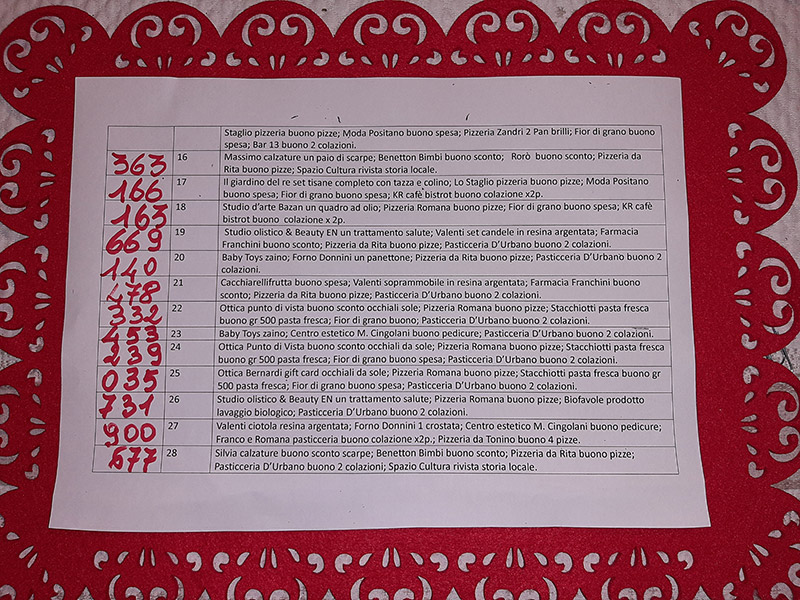 Staglio pizzeria buono pizze; Moda Positano buono spesa; Pizzeria Zandri 2 Pan brilli; Fior di grano buono
spesa; Bar 13 buono 2 colazioni.
363 16 Massimo calzature un paio di scarpe; Benetton Bimbi buono sconto; Rorò buono sconto; Pizzeria da
Rita buono pizze; Spazio Cultura rivista storia locale.
166 17 Il giardino del re set tisane completo con tazza e colino; Lo Staglio pizzeria buono pizze; Moda Positano
buono spesa; Fior di grano buono spesa; KR cafè bistrot buono colazione x2p.
163 18 Studio d'arte Bazan un quadro ad olio; Pizzeria Romana buono pizze; Fior di grano buono spesa; KR cafè
bistrot buono colazione x 2p.
669 19 Studio olistico & Beauty EN un trattamento salute; Valenti set candele in resina argentata; Farmacia
Franchini buono sconto; Pizzeria da Rita buono pizze; Pasticceria D'Urbano buono 2 colazioni.
140 20 Baby Toys zaino; Forno Donnini un panettone; Pizzeria da Rita buono pizze; Pasticceria D'Urbano buono 2
colazioni.
478 21 Cacchiarellifrutta buono spesa; Valenti soprammobile in resina argentata; Farmacia Franchini buono
sconto; Pizzeria da Rita buono pizze; Pasticceria D'Urbano buono 2 colazioni.
332 22 Ottica punto di vista buono sconto occhiali sole; Pizzeria Romana buono pizze; Stacchiotti pasta fresca
buono gr 500 pasta fresca; Fior di grano buono; Pasticceria D'Urbano buono 2 colazioni.
453 23 Baby Toys zaino; Centro estetico M. Cingolani buono pedicure; Pasticceria D'Urbano buono 2 colazioni.
239 24 Ottica Punto di Vista buono sconto occhiali da sole; Pizzeria Romana buono pizze; Stacchiotti pasta fresca
buono gr 500 pasta fresca; Fior di grano buono spesa; Pasticceria D'Urbano buono 2 colazioni.
035 25 Ottica Bernardi gift card occhiali da sole; Pizzeria Romana buono pizze; Stacchiotti pasta fresca buono gr
500 pasta fresca; Fior di grano buono spesa; Pasticceria D'Urbano buono 2 colazioni.
731 26 Studio olistico & Beauty EN un trattamento salute; Pizzeria Romana buono pizze; Biofavole prodotto
lavaggio biologico; Pasticceria D'Urbano buono 2 colazioni.
900 27 Valenti ciotola resina argentata; Forno Donnini 1 crostata; Centro estetico M. Cingolani buono pedicure;
Franco e Romana pasticceria buono colazione x2p.; Pizzeria da Tonino buono 4 pizze.
677 28 Silvia calzature buono sconto scarpe; Benetton Bimbi buono sconto; Pizzeria da Rita buono pizze;
Pasticceria D'Urbano buono 2 colazioni; Spazio Cultura rivista storia locale.